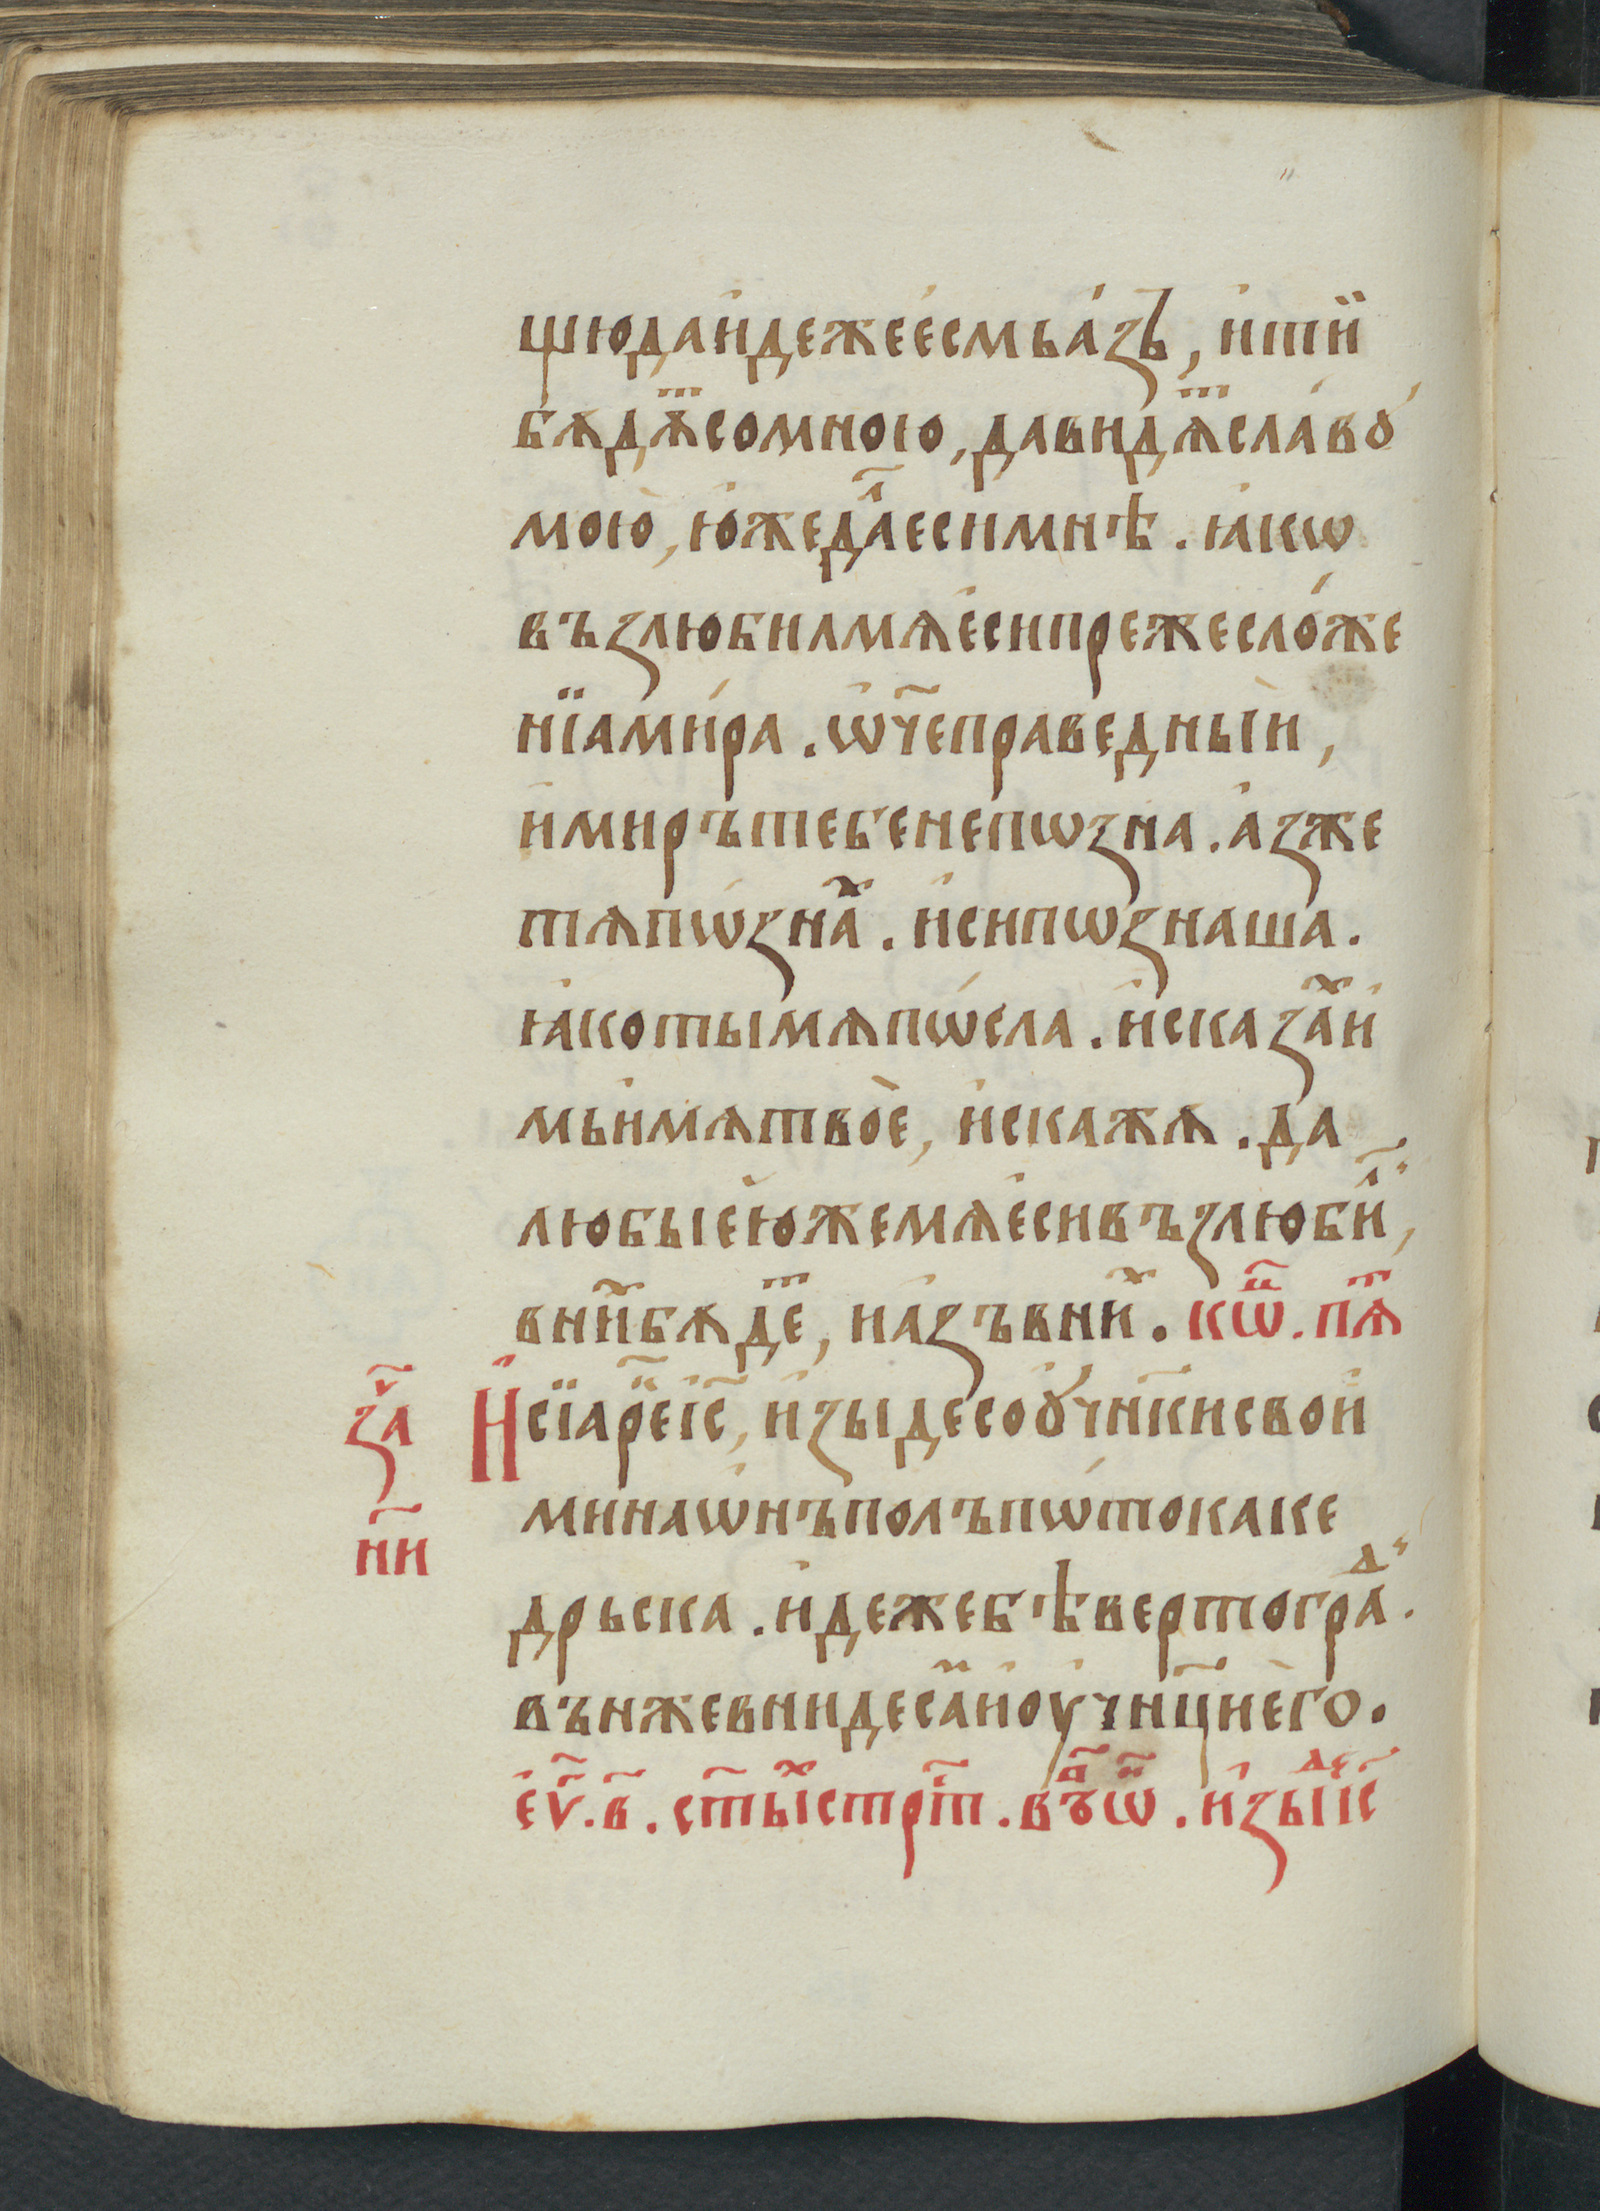 щюдаи҆дежеесмьа́зъ, и҆тїи
бѫдѫ́ⷮсомною, давидѧⷮсла́воу
мою̀, ю҆жедаⷧ҇есимнѣ. ꙗ҆кѡ
възлюбилмѧе҆сипрежесло́же
нїами́ра. ѿ҃чеправедныи̇,
и҆мирътебенепѡзна. а҆зже
тѧпѡ́знаⷯ. и҆сипѡзнаша.
ꙗ҆котымѧпѡ́сла. и҆сказаⷯи҆
мъи҆мѧтвоѐ, и҆скажѫ. да
любыею҆жемѧе҆сивъзлюбиⷧ҇,
вниⷯбѫдеⷮ, иа҆зъвниⷯ. кѡⷩ҇. пѧⷮ
за҇ⷱ И҆сїареⷱ҇і҃с, и҆зыдесоꙋ҆чн҃кисвои҆
н҃и минаѡ҆нъполъпѡ́токаке
дрьска. и҆дежебѣвертограⷣ.
въньжевнидесаⷨи҆оу҆чн҃цие҆го.
е҆ѵⷢ҇. в҃. ст҃ыⷯстрⷭ҇т. въⷪ҇ѡⷩ҇. и҆зыⷣеі҃с